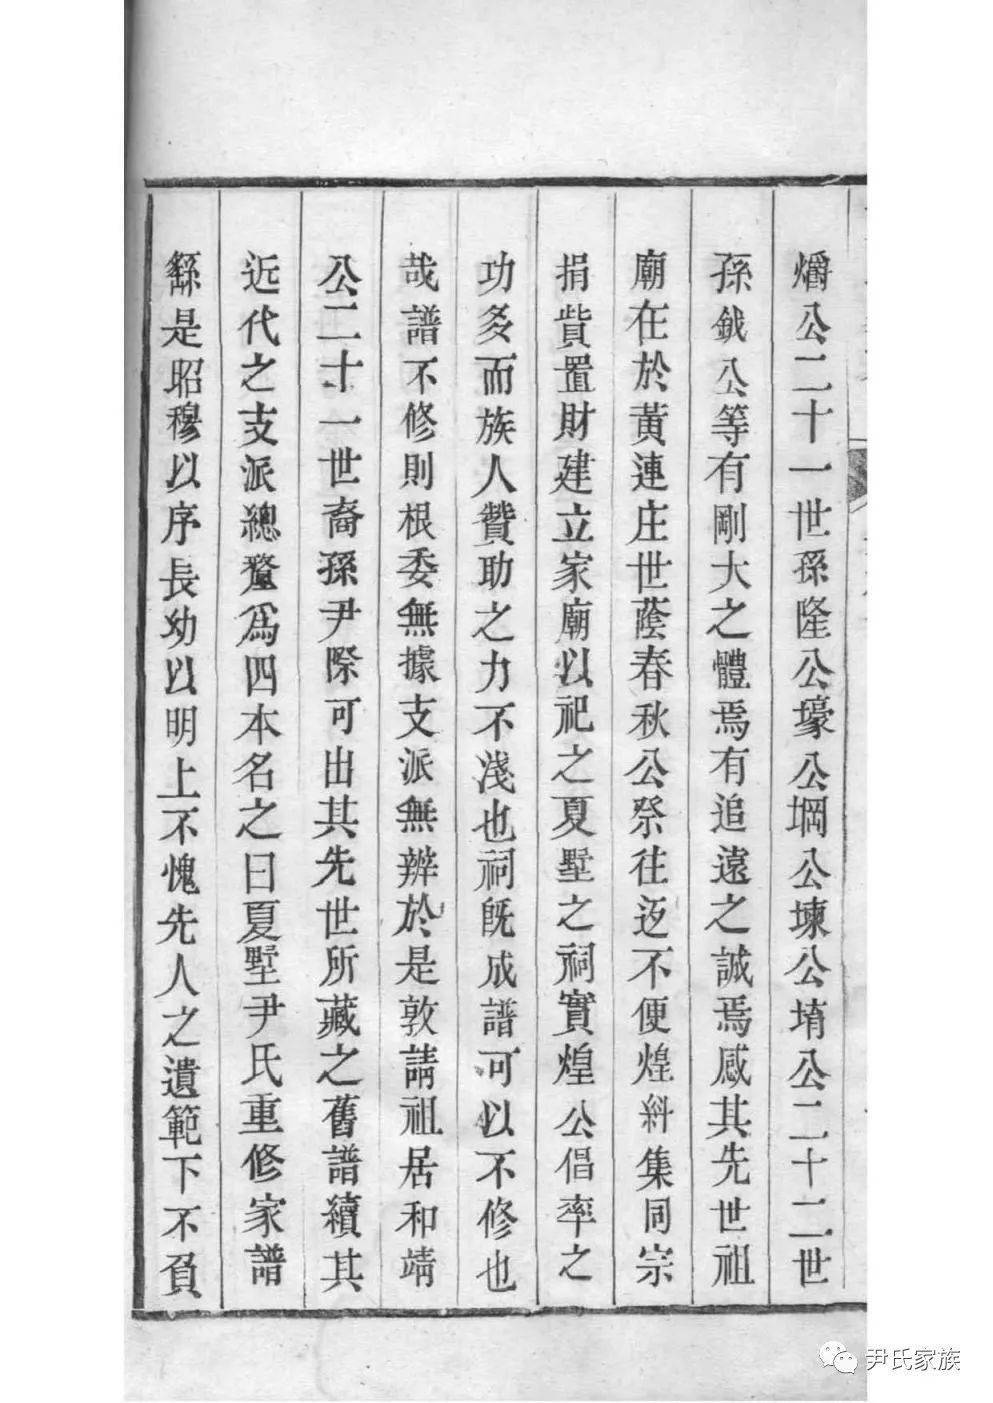 爝公二十一世孫隆公壕公堈公堜公堉公二十二世
孫鉞公等有剛大之體焉有追遠之誠焉感其先世祖
廟在於黃連庄世蔭春秋公祭往返不便煌糾集同宗
捐貲置財建立家廟以祀之夏墅之祠實煌公倡率之
功多而族人贊助之力不淺也祠既成譜可以不修也
哉譜不修則根委無據支派無辨於是敦請祖居和靖
公二十一世裔孫尹際可出其先世所藏之舊譜續其
近代之支派總釐爲四本名之曰夏墅尹氏重修家譜
繇是昭穆以序長幼以明上不愧先人之遺範下不負
尹氏家族